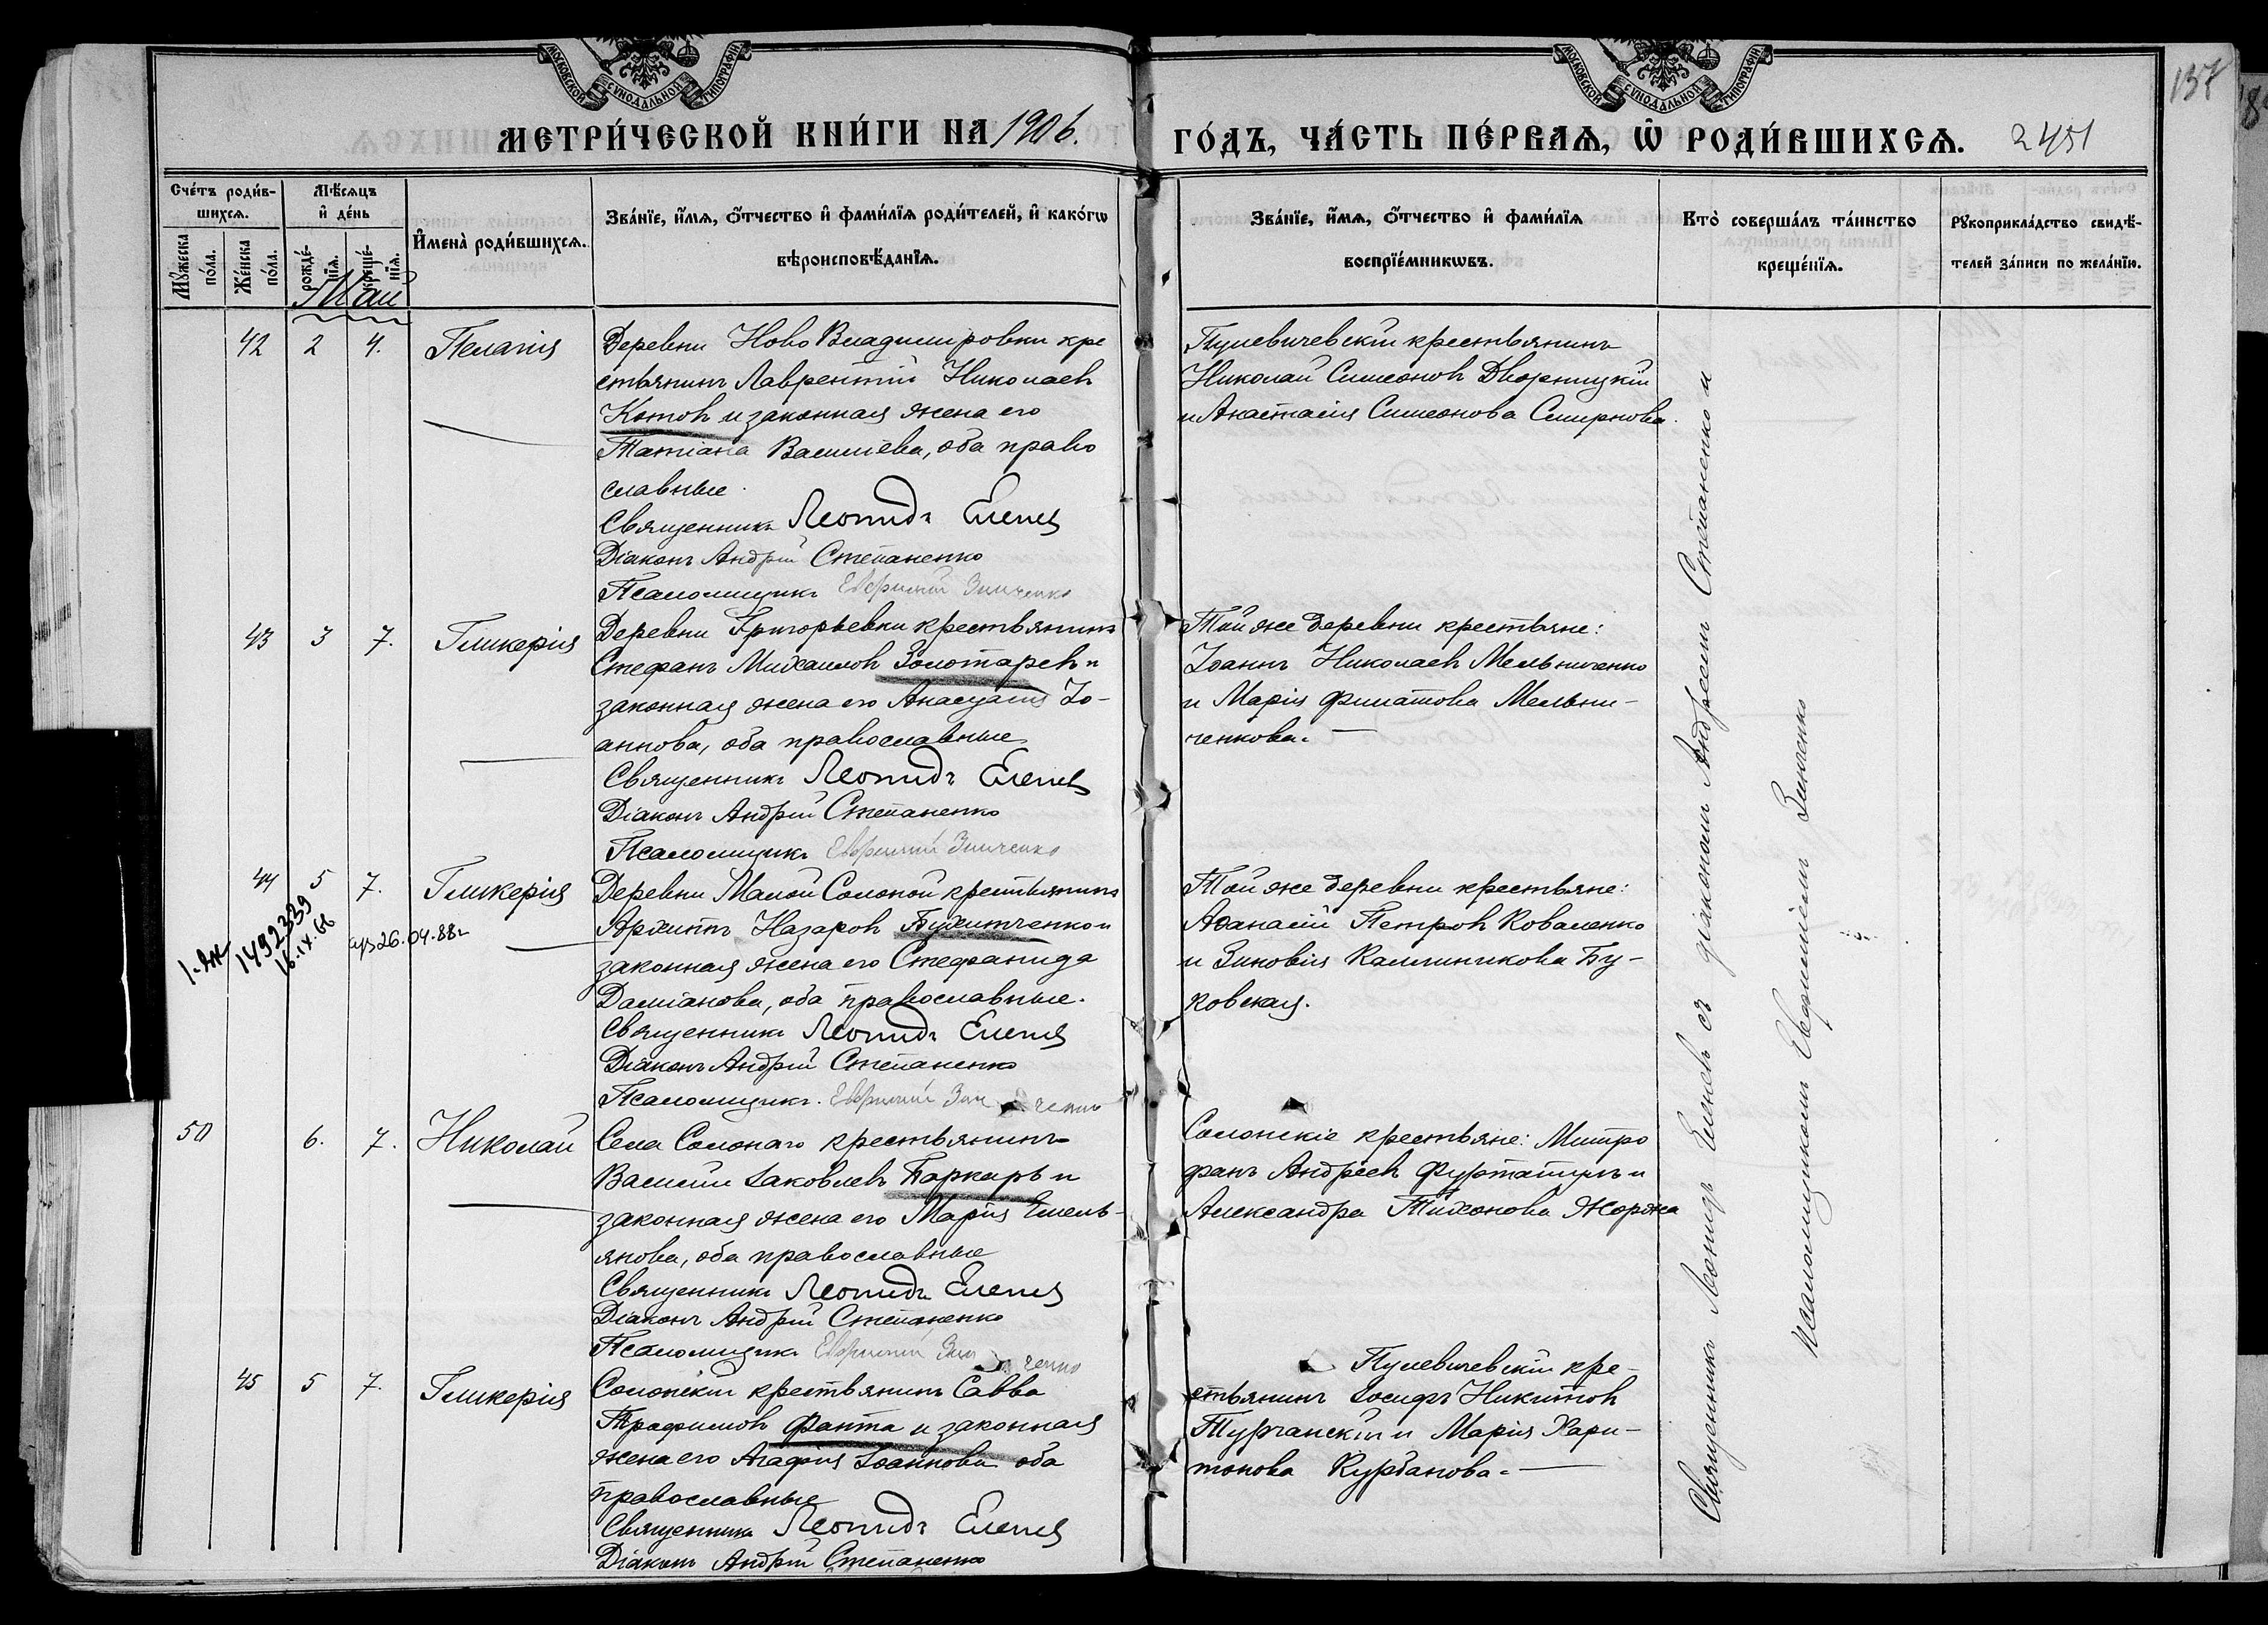 МОСКОВСКОЙ СѴНОДАЛЬНОЙ ТИПОГРАФІИ
МОСКОВСКОЙ СѴНОДАЛЬНОЙ ТИПОГРАФІИ
137
МЕТРИ́ЧЕСКОЙ КНИ́ГИ НА 1906.
ГО́ДЪ, ЧА́СТЬ ПЕ́РВАѦ, Ѿ РОДИ́ВШИХСѦ. 2451
Сче́тъ роди́в-
шихсѧ.
Мѹ́жеска по́ла.
Же́нска по́ла.
Мѣ́сѧцъ
и҆ де́нь
рожде́-нїѧ.
креще́-нїѧ.
И҆мена̀ роди́вшихсѧ.
Зва́нїе, и҆́мѧ, ѻ҆́тчество и҆ фами́лїѧ роди́телей, и҆ како́гѡ
вѣроисповѣ́данїѧ.
Зва́нїе, и҆́мѧ, ѻ҆́тчество и҆ фами́лїѧ
воспрїе́мникѡвъ.
Кто̀ соверша́лъ та́инство
креще́нїѧ.
Рѹкоприкла́дство свидѣ́-
телей за́писи по жела́нїю.
Май
42 2 4. Пелагія
Деревни Ново Владимировки кре
стьянинъ Лаврентій Николаевъ
Котовъ и законная жена его
Татіана Василіева, оба право
славные.
Священникъ Леонидъ Еленевъ
Діаконъ Андрей Степаненко
Псаломщикъ Евфимій Зинченко
Пулевичевскій крестьянинъ
Николай Симеоновъ Дворницкій
и Анастасія Симеонова Смирнова.
43 3 7. Гликерія
Деревни Григорьевки крестьянинъ
Стефанъ Михаиловъ Золотаревъ и
законная жена его Анастасія Іо-
аннова, оба православные
Священникъ Леонидъ Еленевъ
Діаконъ Андрей Степаненко
Псаломщикъ Евфимій Зинченко
Той же деревни крестьяне:
Іоаннъ Николаевъ Мельниченко
и Марія Филатова Мельни-
ченкова.
44 5 7. Гликерія
1492339
16.IX.66
26.04.88г
Деревни Малой Солоной крестьянинъ
Архиппъ Назаровъ Бухитченко и
законная жена его Стефанида
Даміанова, оба православные.
Священникъ Леонидъ Еленевъ
Діаконъ Андрей Степаненко
Псаломщикъ. Евфимій Зинченко
Той же деревни крестьяне:
Аѳанасій Петровъ Коваленко
и Зиновія Каллиникова Бу-
ковская.
50 6. 7. Николай
Села Солонаго крестьянинъ
Василій Іаковлевъ Паркарь и
законная жена его Марія Емель-
янова, оба православные
Священникъ Леонидъ Еленевъ
Діаконъ Андрей Степаненко
Псаломщикъ Евфимій Зинченко
Солонскіе крестьяне: Митро
фанъ Андреевъ Фуртатинъ и
Александра Тихонова Жоржа
45 5 7. Гликерія
Солонскій крестьянинъ Савва
Трофимовъ Фанта и законная
жена его Агафія Іоаннова оба
православные
Священникъ Леонидъ Еленевъ
Діаконъ Андрей Степаненко
Пулевичевскій кре-
стьянинъ Іосифъ Никитовъ
Турчанскій и Марія Хари-
тонова Курбанова.
Священникъ Леонидъ Еленевъ съ діакономъ Андреемъ Степаненко и
псаломщикомъ Евфиміемъ Зинченко